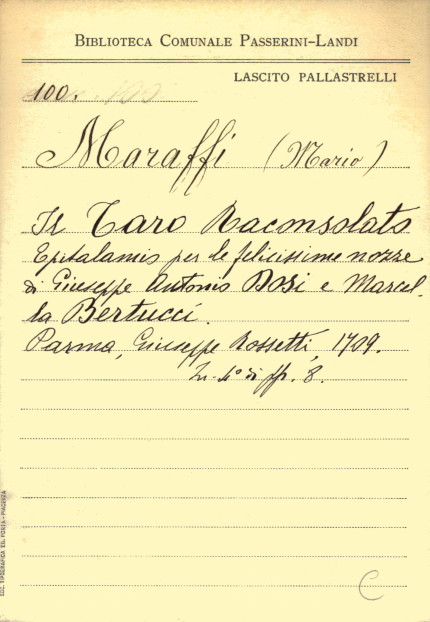 BIBLIOTECA COMUNALE PASSERINI-LANDI
LASCITO PALLASTRELLI
100.
Maraffi (Mario)
Il Taro Raconsolato
Epitalamio per le felicissime nozze
di Giuseppe Antonio Bosi e Marcel-
la Bertucci.
Parma, Giuseppe Rossetti, 1709.
In-4° di pp. 8.
SOC. TIPOGRAFICA ED. PORTA - PIACENZA
C